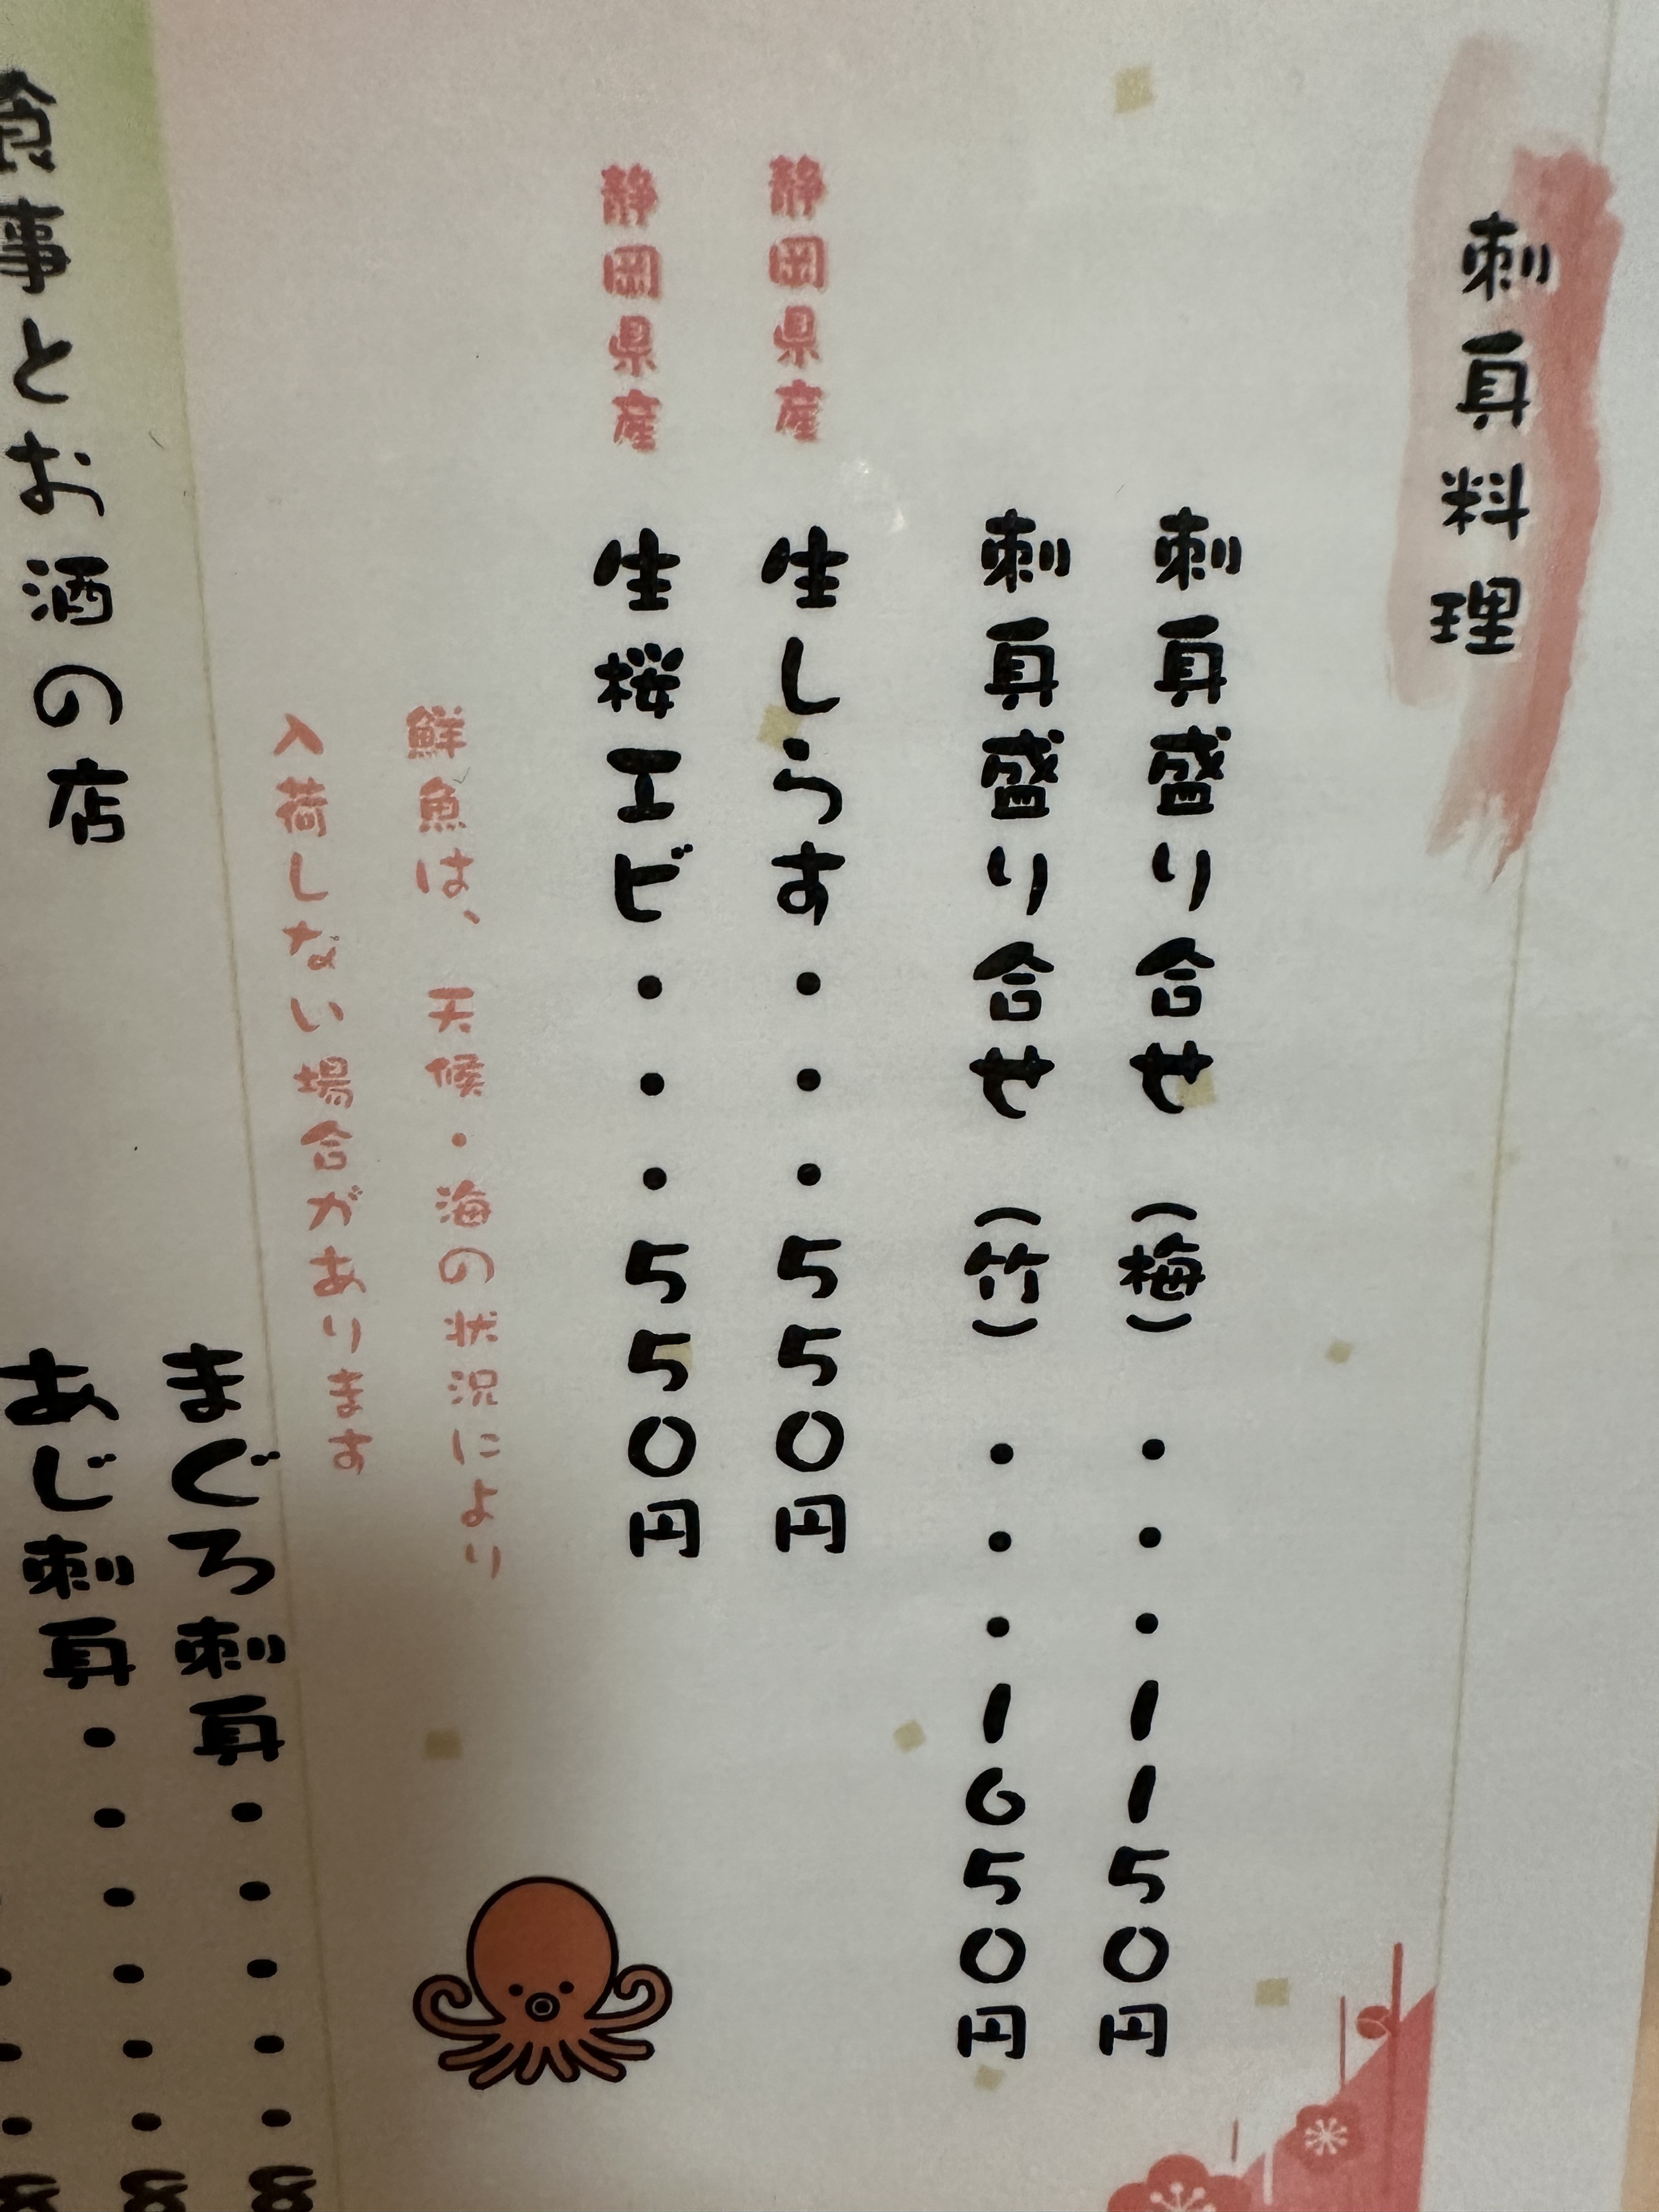 刺身料理
刺身盛り合せ（梅）・・・1150円
刺身盛り合せ（竹）・・・1650円
静岡県産 生しらす・・・550円
静岡県産 生桜エビ・・・550円
鮮魚は、天候・海の状況により
入荷しない場合があります
まぐろ刺身・・・・・8
あじ刺身・・・・・・8
食事とお酒の店